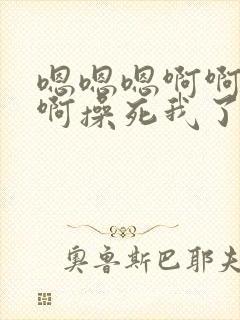 嗯嗯嗯啊啊
啊操死我了
奥鲁斯巴耶夫